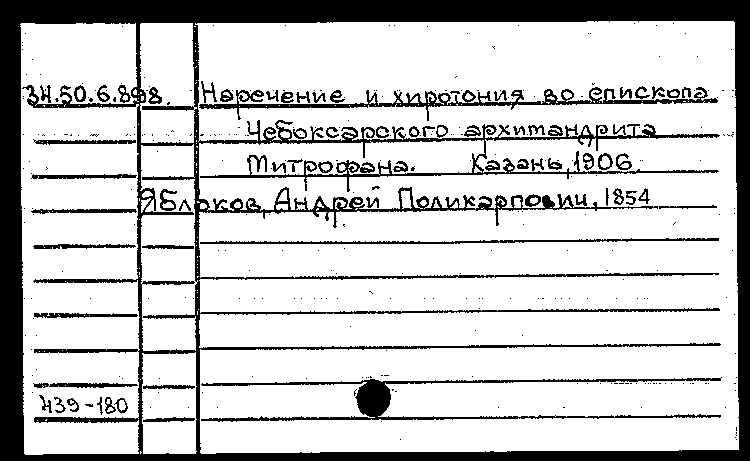 34.50.6.898. Наречение и хиротония во епископа
Чебоксарского архимандрита
Митрофана. Казань, 1906.
Яблоков, Андрей Поликарпович, 1854
439-180